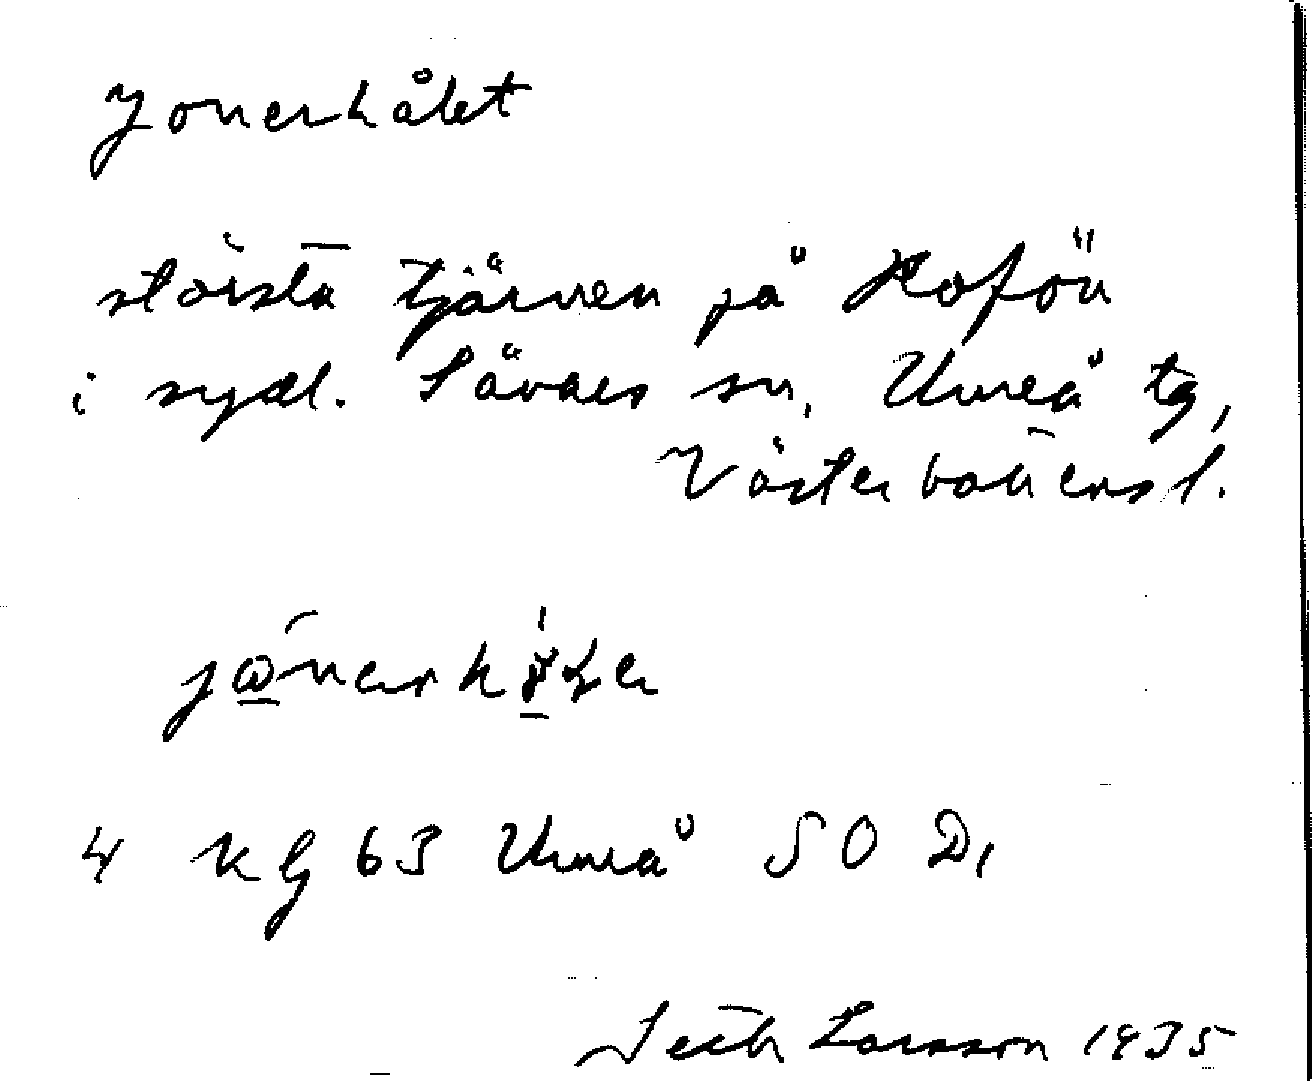 Jonerhålet
största tjärnen på Kofön
i sydl. Sävars sn, Umeå tg,
Västerbottensl.
4 KG 63 Umeå SO D1
Seth Larsson 1935